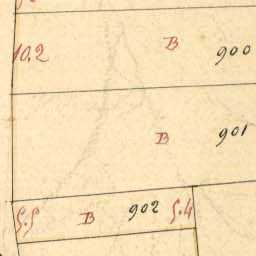 10.2 B 900
B 901
5.5 B 902 5.4